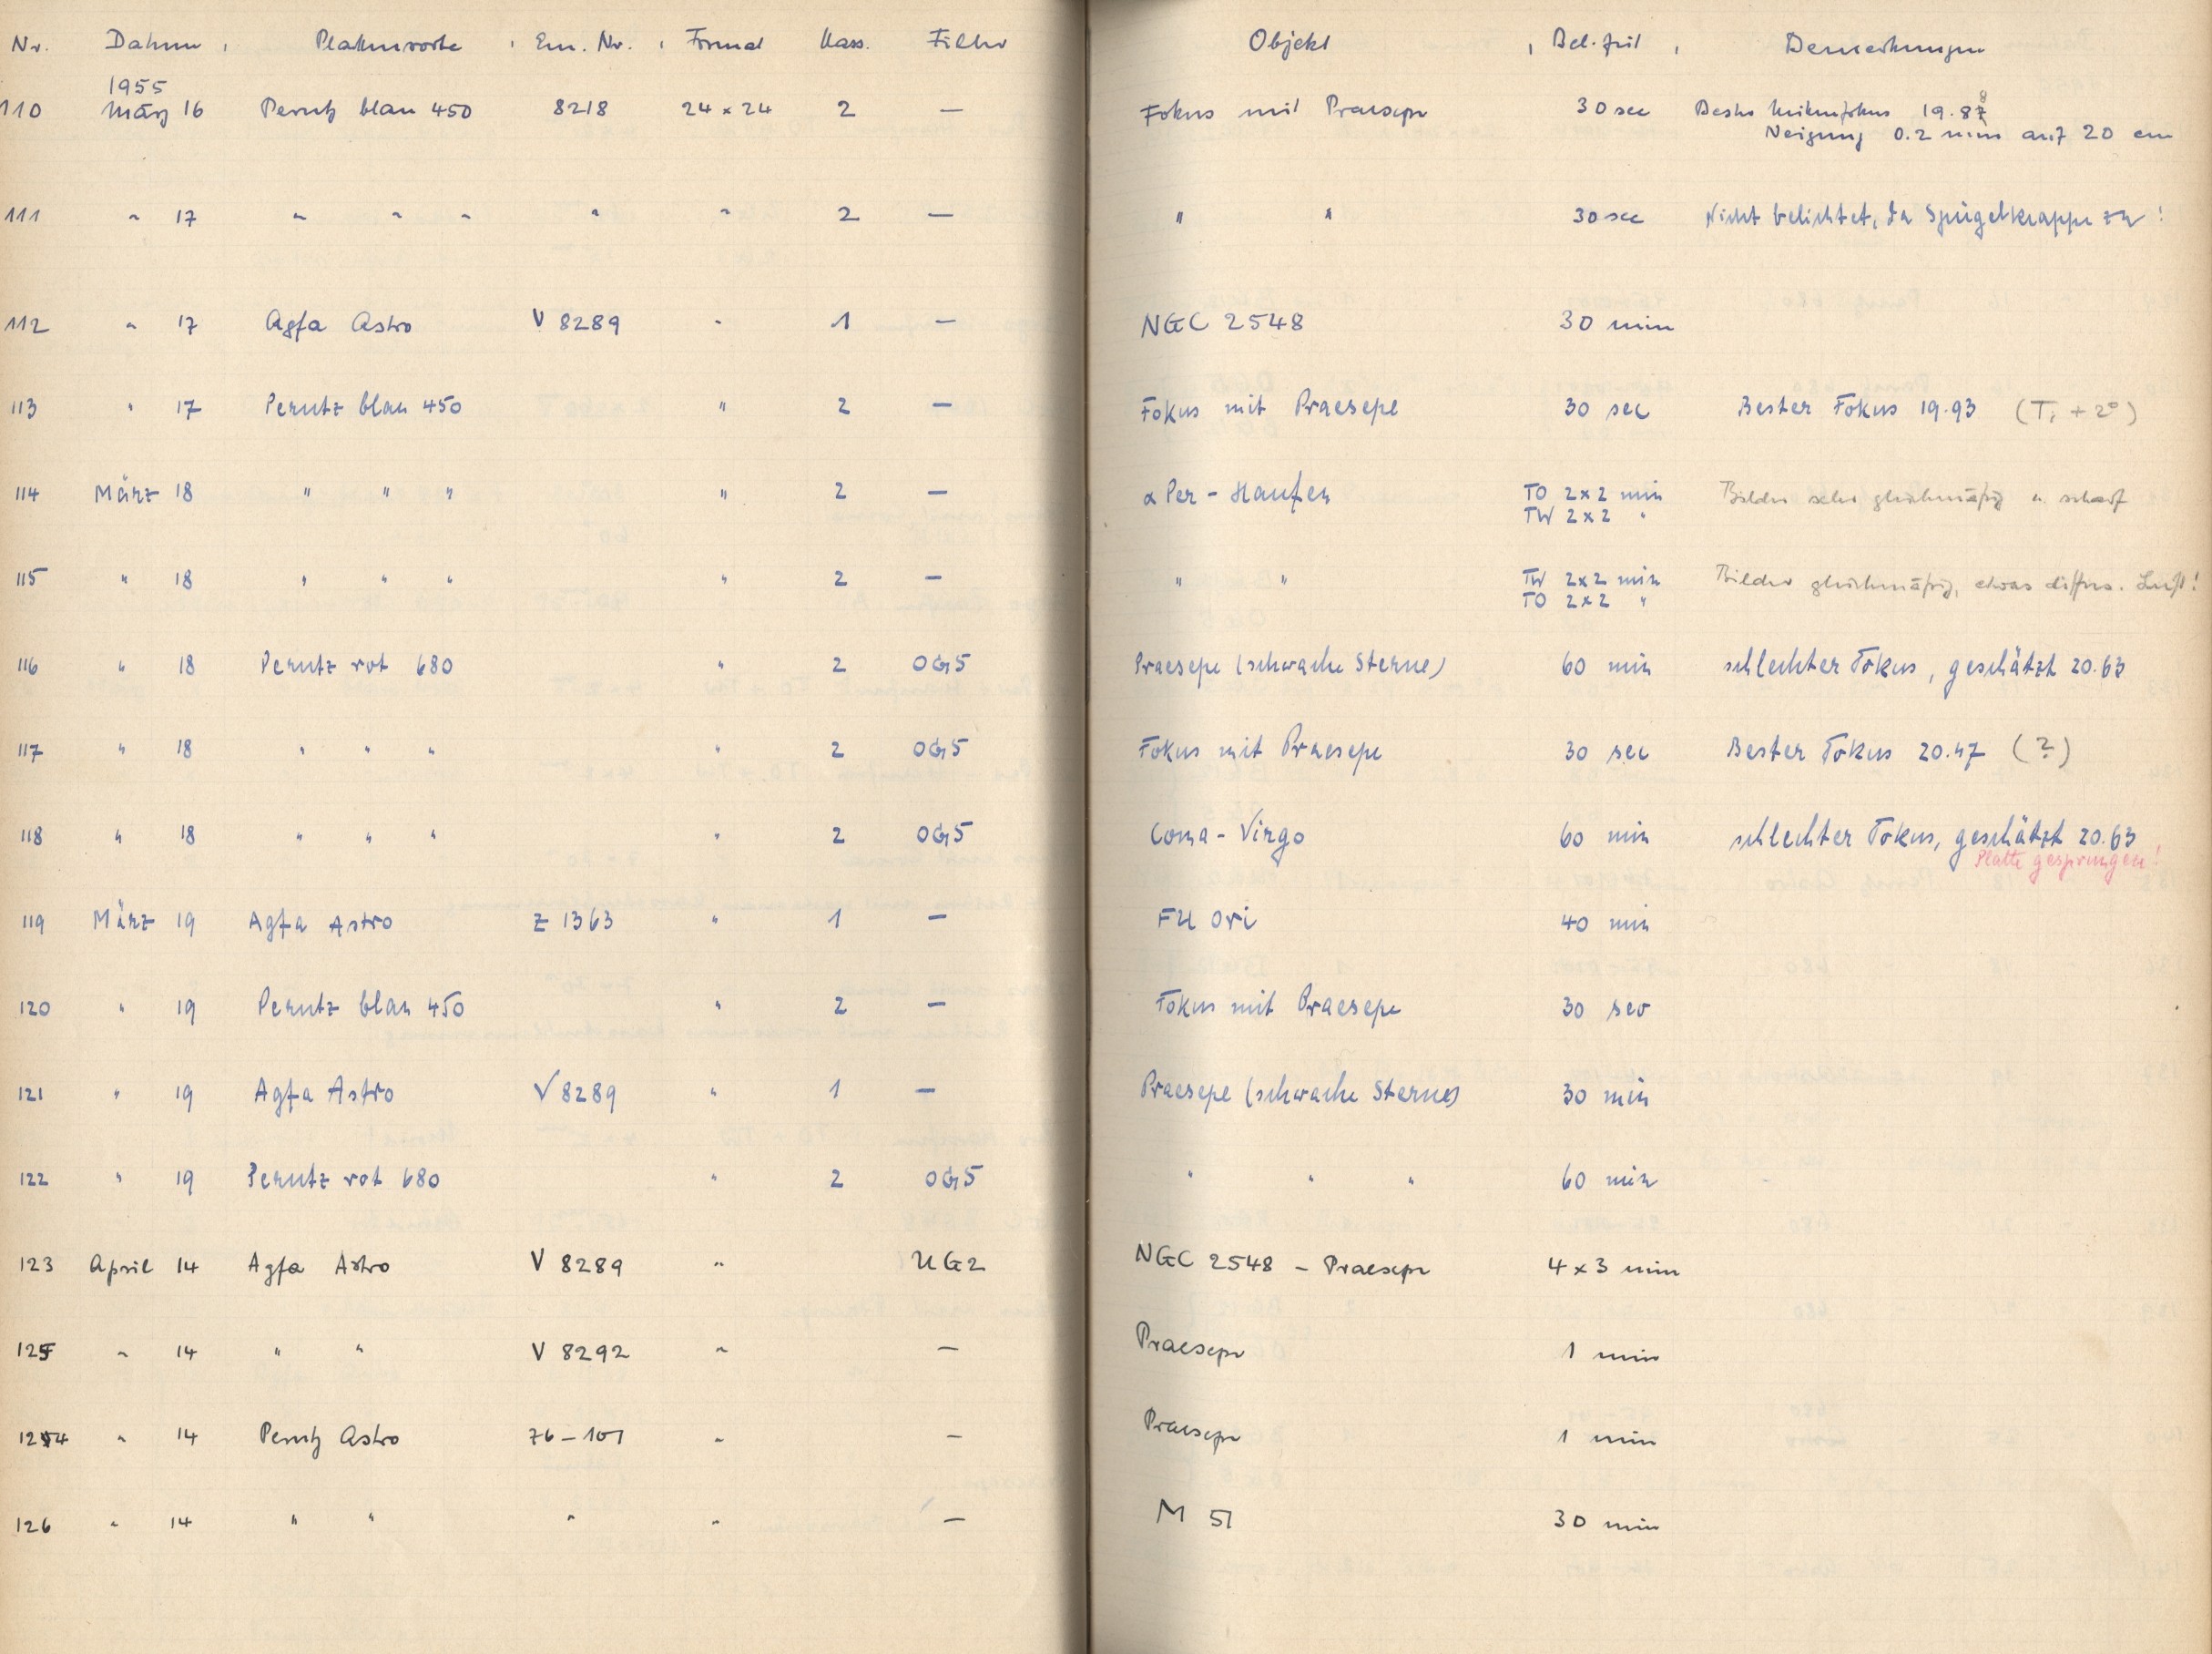 Nr. Datum, Plattensorte, Em. Nr., Format Kass. Filter Objekt, Bel. Zeit, Bemerkungen
1955
110 März 16 Perutz blau 450 8218 24 x 24 2 — Fokus mit Praesepe 30 sec 19.88
Neigung 0.2 mm auf 20 cm
111 " 17 " " " " " 2 — " " 30 sec Nicht belichtet, da Spiegelklappe zu!
112 " 17 Agfa Astro V 8289 " 1 — NGC 2548 30 min
113 " 17 Perutz blau 450 " 2 — Fokus mit Praesepe 30 sec Bester Fokus 19.93 (T, + 2°)
114 März 18 " " " " 2 — α Per - Haufen TO 2x2 min Bilder sehr gleichmäßig u. scharf
TW 2x2 "
115 " 18 " " " " 2 — " " TW 2x2 min Bilder gleichmäßig, etwas diffus. Luft!
TO 2x2 "
116 " 18 Perutz rot 680 " 2 OG5 Praesepe (schwache Sterne) 60 min schlechter Fokus, geschätzt 20.63
117 " 18 " " " " 2 OG5 Fokus mit Praesepe 30 sec Bester Fokus 20.47 (?)
118 " 18 " " " " 2 OG5 Coma - Virgo 60 min schlechter Fokus, geschätzt 20.63
Platte gesprungen!
119 März 19 Agfa Astro Z 1363 " 1 — FU Ori 40 min
120 " 19 Perutz blau 450 " 2 — Fokus mit Praesepe 30 sec
121 " 19 Agfa Astro V 8289 " 1 — Praesepe (schwache Sterne) 30 min
122 " 19 Perutz rot 680 " 2 OG5 " " " 60 min
123 April 14 Agfa Astro V 8289 " UG2 NGC 2548 - Praesepe 4 x 3 min
125 " 14 " " V 8292 " — Praesepe 1 min
124 " 14 Perutz Astro 76-101 " — Praesepe 1 min
126 " 14 " " " " — M 51 30 min